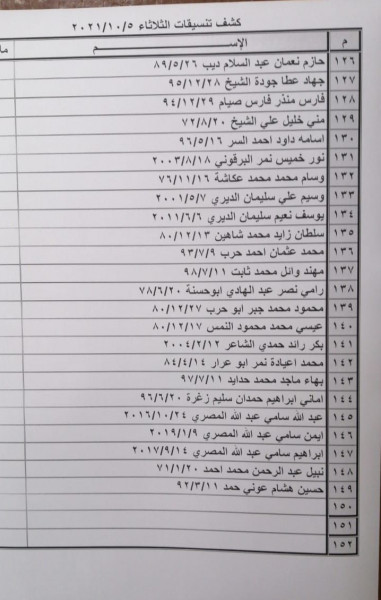 كشف تنسيقات الثلاثاء ٢٠٢١/١٠/٥
م الإســـــــم
١٢٦ حازم نعمان عبد السلام ديب ٨٩/٥/٢٦
١٢٧ جهاد عطا جودة الشيخ ٩٥/١٢/٢٨
١٢٨ فارس منذر فارس صيام ٩٤/١٢/٢٩
١٢٩ مني خليل علي الشيخ ٧٢/٨/٢٠
١٣٠ اسامه داود احمد السر ٩٦/٥/١٦
١٣١ نور خميس نمر البرقوني ٢٠٠٣/٨/١٨
١٣٢ وسام محمد محمد عكاشة ٧٦/١١/١٦
١٣٣ وسيم علي سليمان الديري ٢٠٠١/٥/٧
١٣٤ يوسف نعيم سليمان الديري ٢٠١١/٦/٦
١٣٥ سلطان زايد محمد شاهين ٨٠/١٢/١٣
١٣٦ محمد عثمان احمد حرب ٩٣/٧/٩
١٣٧ مهند وائل محمد ثابت ٩٨/٧/١١
١٣٨ رامي نصر عبد الهادي ابوحسنة ٧٨/٦/٢٠
١٣٩ محمود محمد جبر ابو حرب ٨٠/١٢/٢٧
١٤٠ عيسي محمد محمود النمس ٨٠/١٢/١٧
١٤١ بكر رائد حمدي الشاعر ٢٠٠٤/٢/١٢
١٤٢ محمد اعيادة نمر ابو عرار ٨٤/٤/١٤
١٤٣ بهاء ماجد محمد حدايد ٩٧/٧/١١
١٤٤ اماني ابراهيم حمدان سليم زغرة ٩٦/٦/٢٠
١٤٥ عبد الله سامي عبد الله المصري ٢٠١٦/١٠/٢٤
١٤٦ ايمن سامي عبد الله المصري ٢٠١٩/١/٩
١٤٧ ابراهيم سامي عبد الله المصري ٢٠١٧/٩/١٤
١٤٨ نبيل عبد الرحمن محمد احمد ٧١/١/٢٠
١٤٩ حسين هشام عوني حمد ٩٢/٣/١١
١٥٠
١٥١
١٥٢